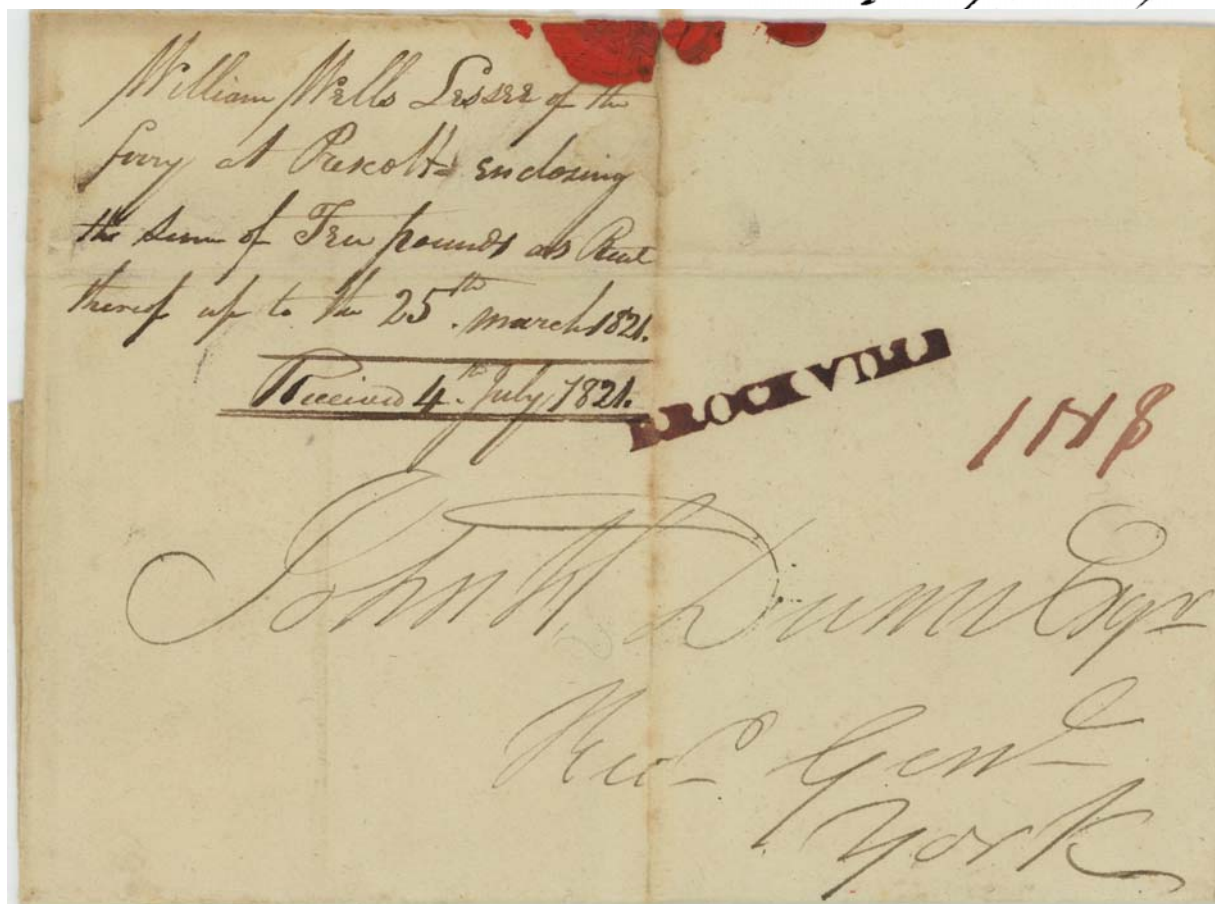 William Wells Lessee of the
ferry at Prescott enclosing
the sum of Ten pounds as Rent
thereof up to the 25th. march 1821.
Received 4th. July 1821.
BROCKVILLE
John H Dunn Esqr
Recr Genl
York